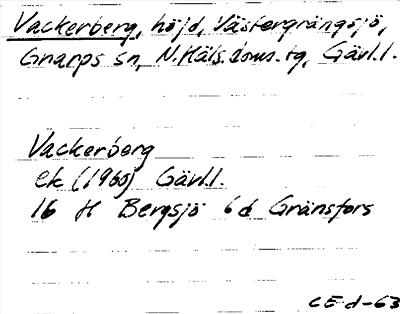 Vackerberg, höjd, Västergrängsjö,
Gnarps sn, N.Häls.doms.tg, Gävl.l.
Vackerberg
ek (1960) Gävl.l.
16 H Bergsjö 6d Gränsfors
CE-d-63